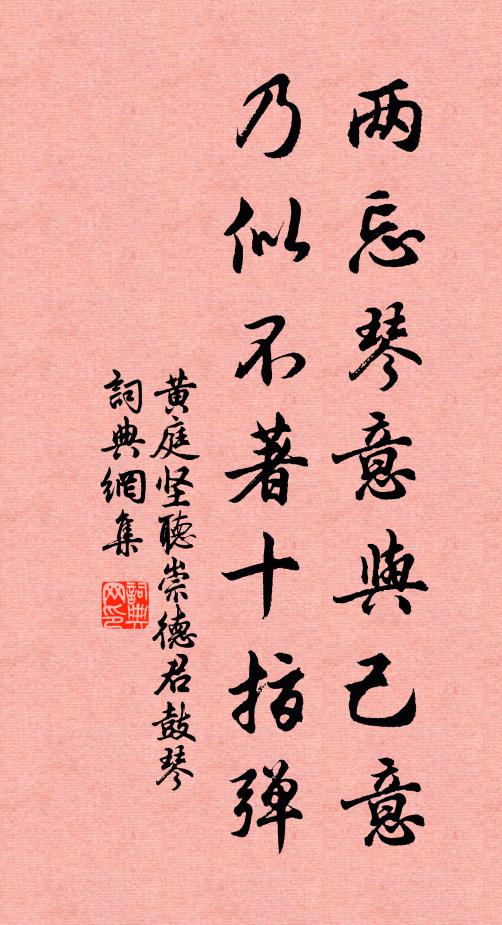 两忘琴意與己意
乃似不著十指弹
黄庭坚聽崇德君鼓琴
詞典網集
詞典
网印